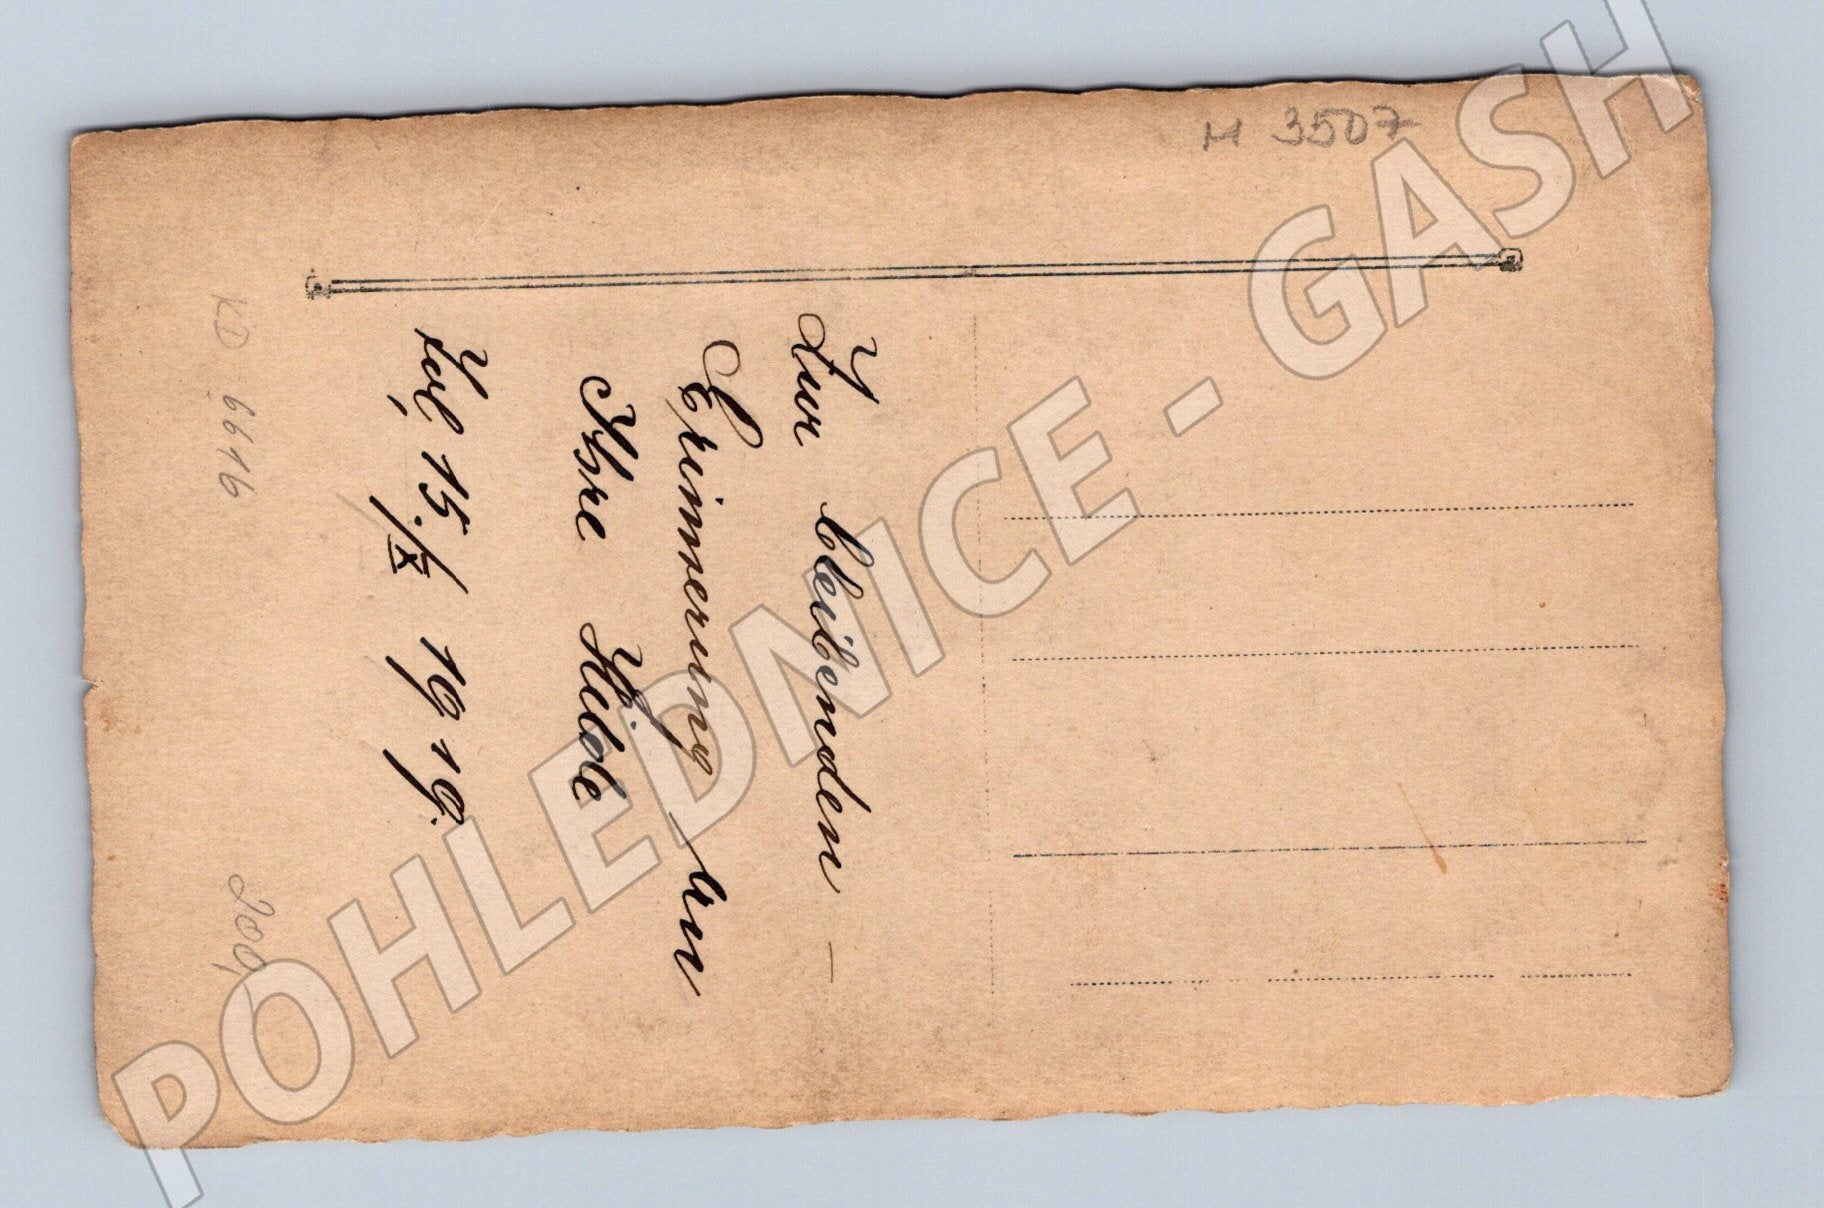 Zur bleibenden –
Erinnerung an
Ihre Hilde
15./IX 1919.
M 3507
KD 6616
200,-
POHLEDNICE - GASH